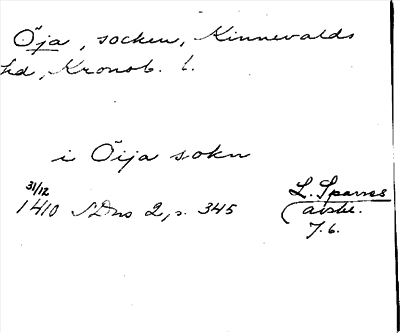 Öja, socken, Kinnevalds
hd, Kronob. l.
i Öija sokn
31/12
1410 SDns 2, s. 345
L. Sparres
avskr.
7.6.